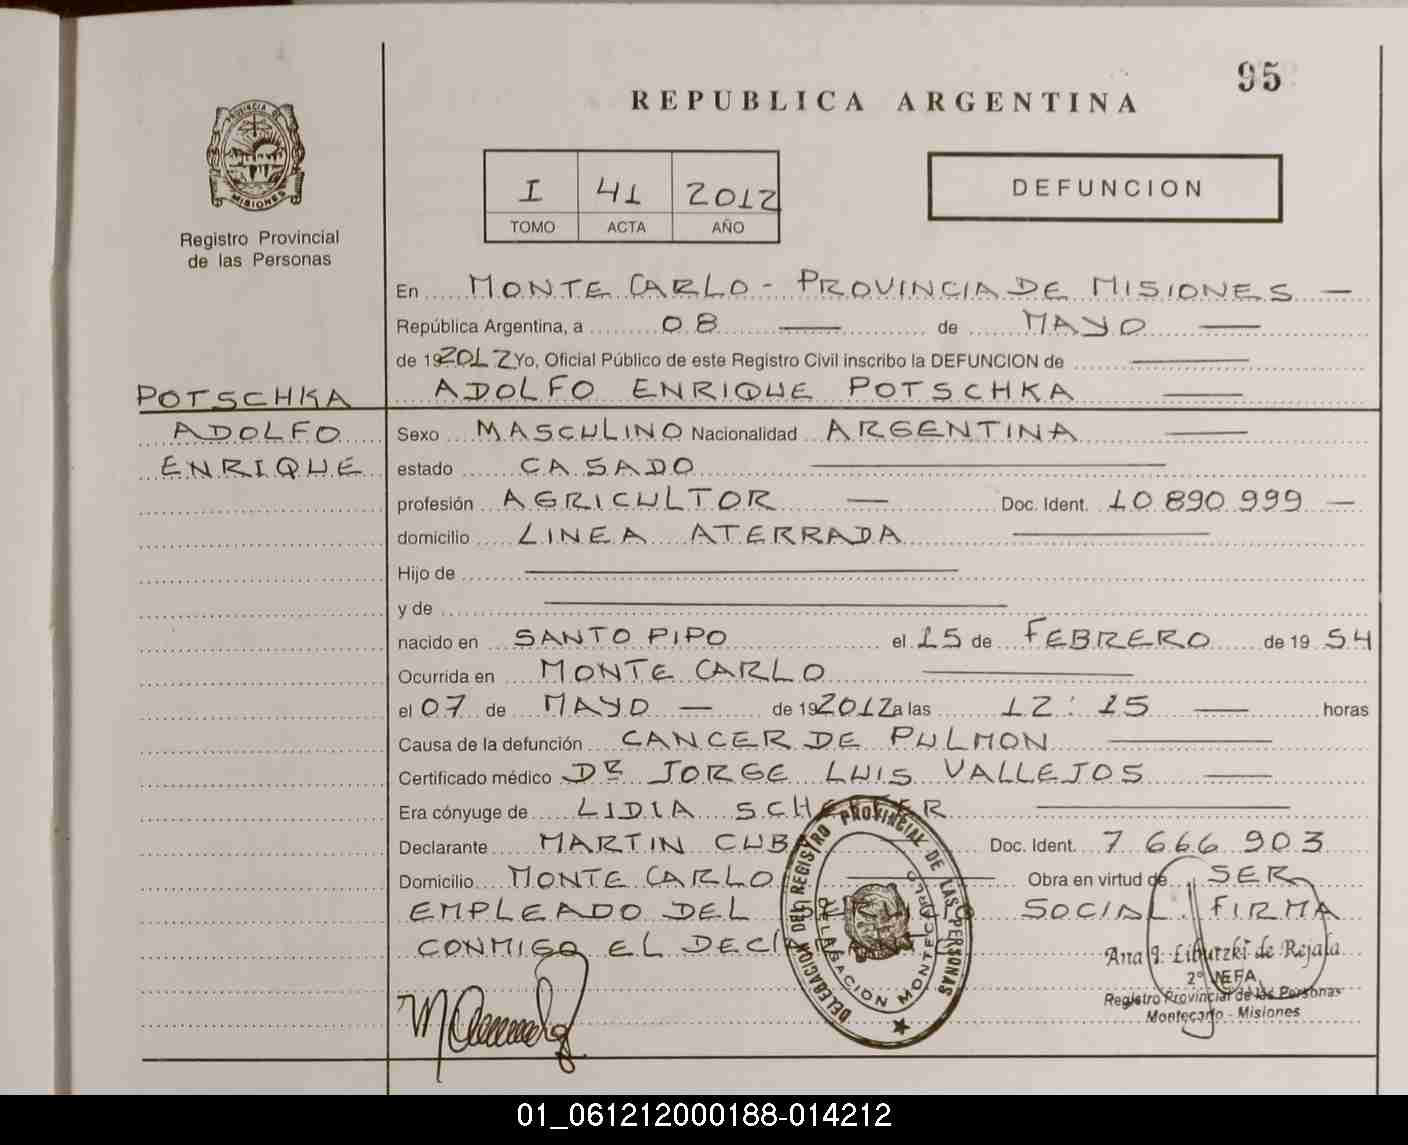 95
REPUBLICA ARGENTINA
PROVINCIA DE
MISIONES
Registro Provincial
de las Personas
I 41 2012
TOMO ACTA AÑO
DEFUNCION
En MONTE CARLO - PROVINCIA DE MISIONES —
República Argentina, a 08 — de MAYO —
de 192012 Yo, Oficial Público de este Registro Civil inscribo la DEFUNCION de —
POTSCHKA ADOLFO ENRIQUE POTSCHKA —
ADOLFO Sexo MASCULINO Nacionalidad ARGENTINA —
ENRIQUE estado CASADO —
profesión AGRICULTOR — Doc. Ident. 10 890 999 —
domicilio LINEA ATERRADA —
Hijo de —
y de —
nacido en SANTO PIPO el 15 de FEBRERO de 19 54
Ocurrida en MONTE CARLO —
el 07 de MAYO — de 192012 a las 12:15 — horas
Causa de la defunción CANCER DE PULMON —
Certificado médico DR JORGE LUIS VALLEJOS —
Era cónyuge de LIDIA —
Declarante MARTIN — Doc. Ident. 7 666 903
Domicilio MONTE CARLO — Obra en virtud de SER
EMPLEADO DEL SERVICIO SOCIAL. FIRMA
CONMIGO EL
DELEGACION DEL REGISTRO PROVINCIAL DE LAS PERSONAS
DELEGACION MONTECARLO
Ana I. de Rejala
2° JEFA
Registro Provincial de las Personas
Montecarlo - Misiones
01_061212000188-014212